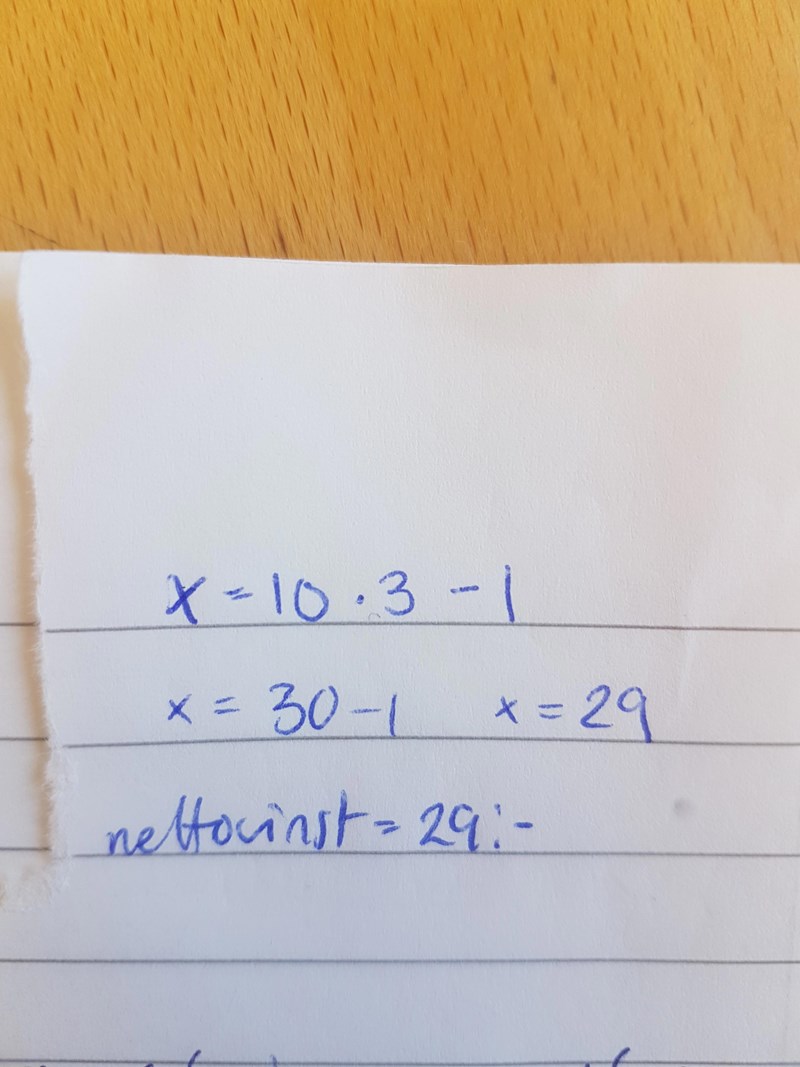 x = 10 · 3 - 1
x = 30 - 1 x = 29
nettovinst = 29:-